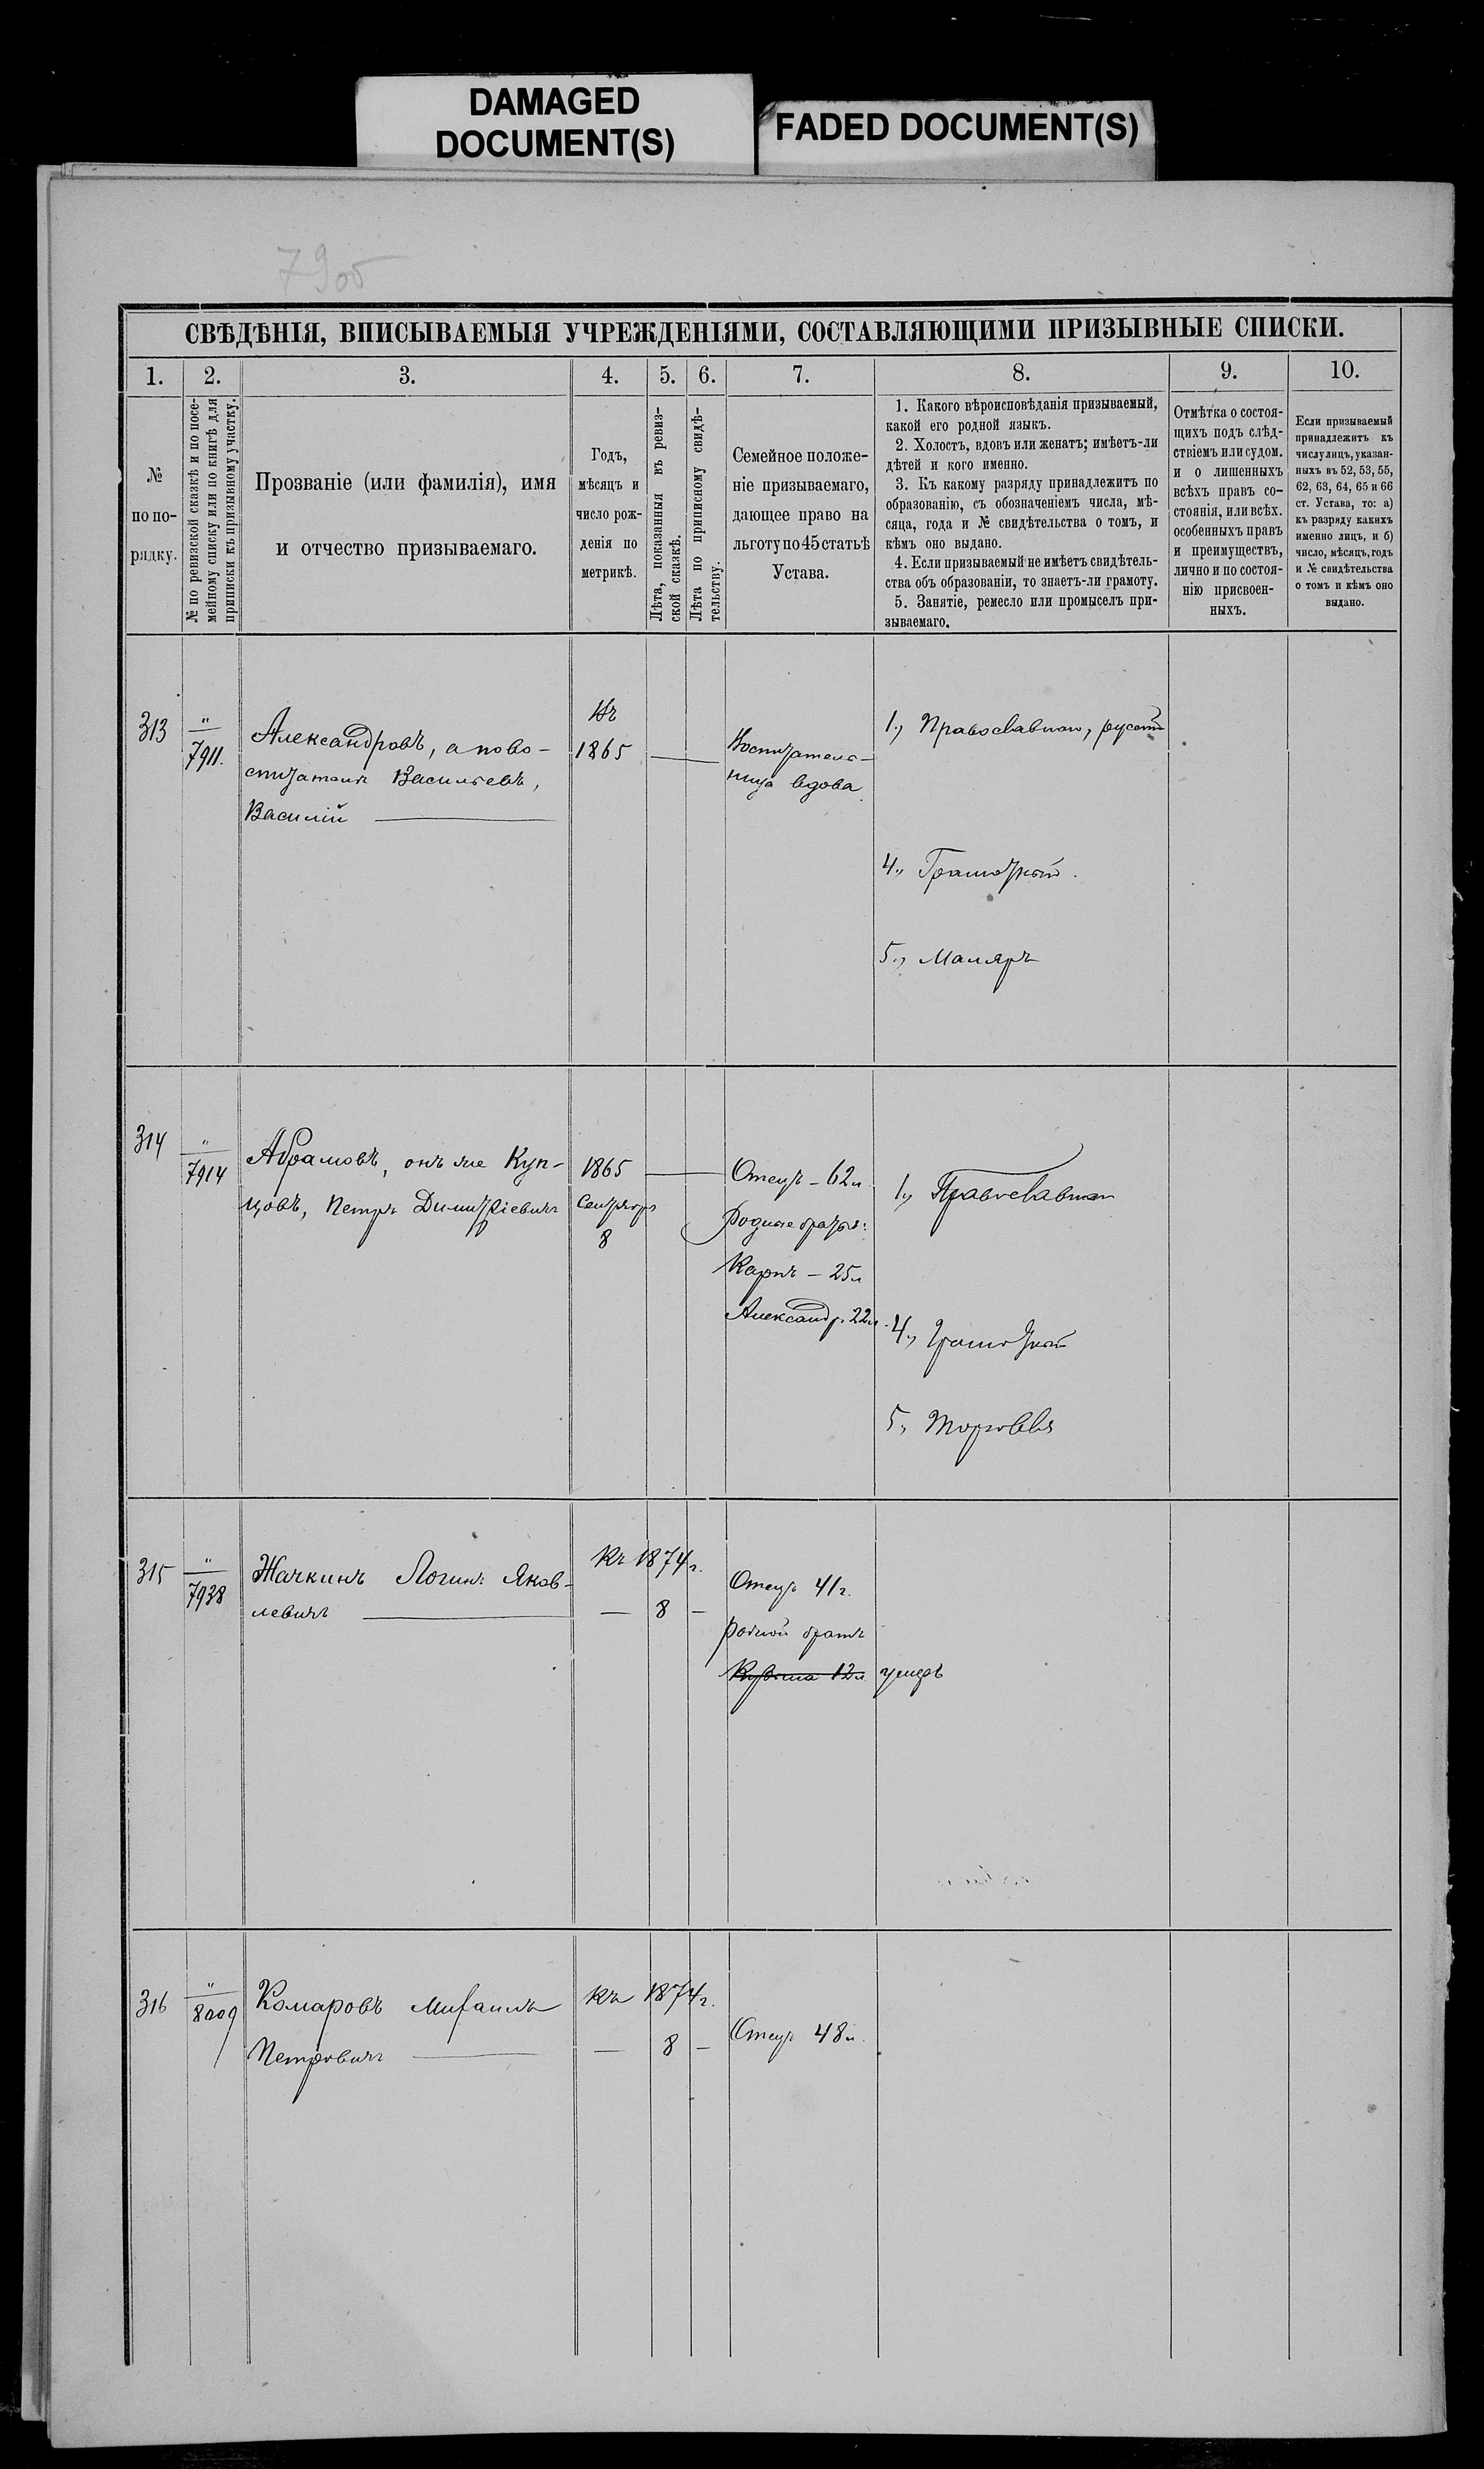 DAMAGED
DOCUMENT(S)
FADED DOCUMENT(S)
7905
СВѢДѢНІЯ, ВПИСЫВАЕМЫЯ УЧРЕЖДЕНІЯМИ, СОСТАВЛЯЮЩИМИ ПРИЗЫВНЫЕ СПИСКИ.
1.
2.
3.
4.
5.
6.
7.
8.
9.
10.
№
по по-
рядку.
№ по ревизской сказкѣ и по посе-
мейному списку или по книгѣ для
приписки къ призывному участку.
Прозваніе (или фамилія), имя
и отчество призываемаго.
Годъ,
мѣсяцъ и
число рож-
денія по
метрикѣ.
Лѣта, показанныя въ ревиз-
ской сказкѣ.
Лѣта по приписному свидѣ-
тельству.
Семейное положе-
ніе призываемаго,
дающее право на
льготу по 45 статьѣ
Устава.
1. Какого вѣроисповѣданія призываемый,
какой его родной языкъ.
2. Холостъ, вдовъ или женатъ; имѣетъ-ли
дѣтей и кого именно.
3. Къ какому разряду принадлежитъ по
образованію, съ обозначеніемъ числа, мѣ-
сяца, года и № свидѣтельства о томъ, и
кѣмъ оно выдано.
4. Если призываемый не имѣетъ свидѣтель-
ства объ образованіи, то знаетъ-ли грамоту.
5. Занятіе, ремесло или промыселъ при-
зываемаго.
Отмѣтка о состоя-
щихъ подъ слѣд-
ствіемъ или судом.
и о лишенныхъ
всѣхъ правъ со-
стоянія, или всѣх.
особенныхъ правъ
и преимуществъ,
лично и по состоя-
нію присвоен-
ныхъ.
Если призываемый
принадлежитъ къ
числу лицъ, указан-
ныхъ въ 52, 53, 55,
62, 63, 64, 65 и 66
ст. Устава, то: а)
къ разряду какихъ
именно лицъ, и б)
число, мѣсяцъ, годъ
и № свидѣтельства
о томъ и кѣмъ оно
выдано.
313
"
7911.
Александровъ, а по во-
спитателю Васильевъ,
Василій
1865
Воспитатель-
ница вдова
1, Православнаго, русскій
4, Грамотный.
5, Маляръ
314
"
7914
Абрамовъ, онъ же Куп-
цовъ, Петръ Димитріевичъ
1865
Сентября
8
Отецъ – 62 л
родные братья:
Карпъ – 25 л
Александр. 22 л.
1, Православнаго
4, Грамотный
5, Торговля
315
"
7938
Жачкинъ Логинъ Яков-
левичъ
Къ 1874 г.
— 8 —
Отецъ 41 г.
родной братъ
Кузьма 12 л умеръ
316
"
8009
Комаровъ Михаилъ
Петровичъ
Къ 1874 г.
— 8 —
Отецъ 48 л.